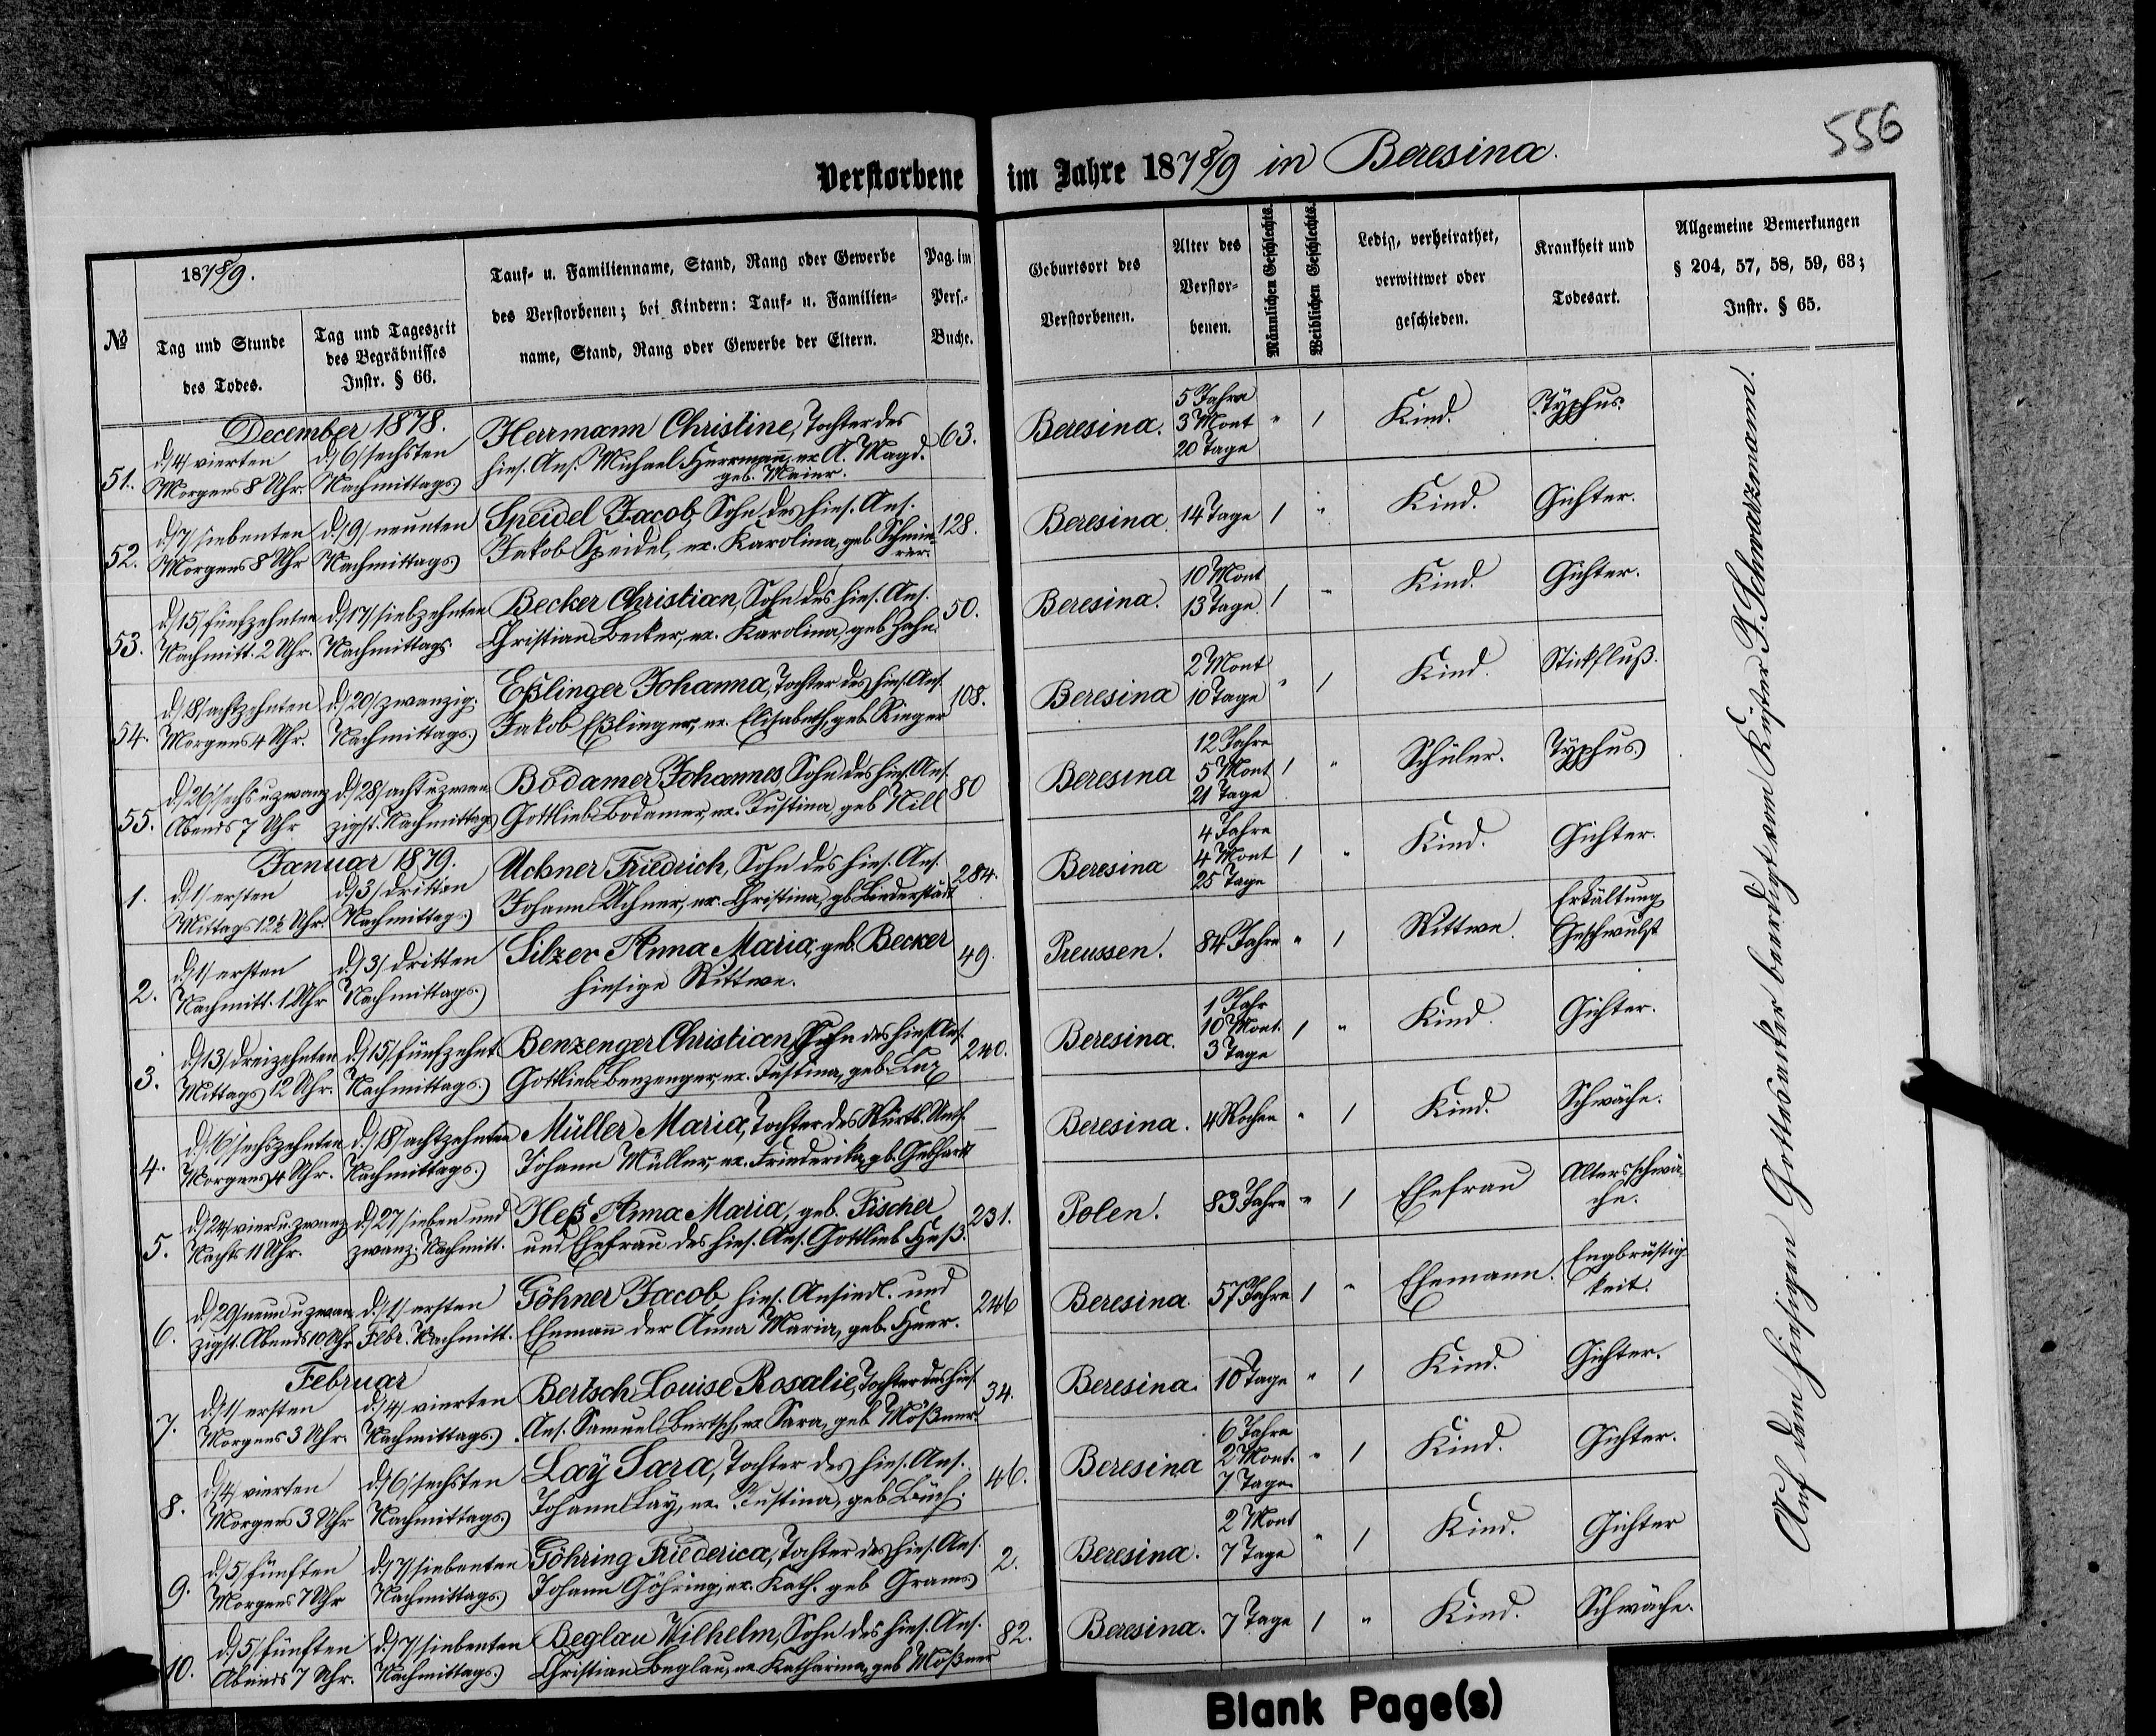 556
Verstorbene im Jahre 1878/9 in Beresina.
1878/9.
№
Tag und Stunde
des Todes.
Tag und Tageszeit
des Begräbnisses
Instr. § 66.
Tauf- u. Familienname, Stand, Rang oder Gewerbe
des Verstorbenen; bei Kindern: Tauf- u. Familien-
name, Stand, Rang oder Gewerbe der Eltern.
Pag. im
Pers.-
Buche.
Geburtsort des
Verstorbenen.
Alter des
Verstor-
benen.
Männlichen Geschlechts.
Weiblichen Geschlechts.
Ledig, verheirathet,
verwittwet oder
geschieden.
Krankheit und
Todesart.
Allgemeine Bemerkungen
§ 204, 57, 58, 59, 63;
Instr. § 65.
December 1878.
51. d. /4/ vierten d. /6/ sechsten Herrmann Christine, Tochter des 63. Beresina. 5 Jahre 3 Mont 20 Tage " 1 Kind. Typhus.
Morgens 8 Uhr. Nachmittags hies. Ans. Michael Herrmann, ux. A. Magd.
geb. Maier.
52. d. /7/ siebenten d. /9/ neunten Speidel Jacob, Sohn des hies. Ans. 128. Beresina. 14 Tage 1 " Kind. Gichter.
Morgens 8 Uhr Nachmittags Jakob Speidel, ux. Karolina, geb.
53. d. /15/ fünfzehnten d. /17/ siebzehnten Becker Christian, Sohn des hies. Ans. 50. Beresina. 10 Mont 13 Tage 1 " Kind. Gichter.
Nachmitt. 2 Uhr. Nachmittags Christian Becker, ux. Karolina, geb. Hahn.
54. d. /18/ achtzehnten d. /20/ zwanzig. Eßlinger Johanna, Tochter des hies. Ans. 108. Beresina 2 Mont 10 Tage " 1 Kind. Stickfluß.
Morgens 4 Uhr. Nachmittags. Jakob Eßlinger, ux. Elisabeth, geb. Rieger
55. d. /26/ sechs u. zwanz d. /28/ acht u. zwan Bodamer Johannes, Sohn des hies. Ans. 80 Beresina 12 Jahre 5 Mont 21 Tage 1 " Schüler. Typhus
Abends 7 Uhr zigst. Nachmittags Gottlieb Bodamer, ux. Justina, geb Nill
Januar 1879.
1. d. /1/ ersten d. /3/ dritten Uckner Friedrich, Sohn des hies. Ans. 284. Beresina 4 Jahre 4 Mont 25 Tage 1 " Kind. Gichter.
Mittags 12½ Uhr. Nachmittags Johann Uckner, ux. Christina, gb.
2. d. /1/ ersten d. /3/ dritten Silzer Anna Maria, geb. Becker 49. Preussen. 84 Jahre " 1 Wittwe. Erkältung Geschwulst
Nachmitt. 1 Uhr Nachmittags. hiesige Wittwe.
3. d. /13/ dreizehnten d. /15/ fünfzehnt. Benzenger Christian, Sohn des hies. Ans. 240. Beresina. 1 Jahr 10 Mont. 3 Tage 1 " Kind. Gichter.
Mittags 12 Uhr. Nachmittags. Gottlieb Benzenger, ux. Justina, geb. Lux
4. d. /16/ sechszehnten d. /18/ achtzehnten Müller Maria, Tochter des Würtb. Unth. — Beresina. 4 Wochen " 1 Kind. Schwäche.
Morgens 4 Uhr. Nachmittags. Johann Müller, ux. Friederika, gb. Gebhardt
5. d. /24/ vier u. zwanz d. /27/ sieben und Heß Anna Maria, geb. Fischer 231. Polen. 83 Jahre " 1 Ehefrau Altersschwä-
Nachts 11 Uhr. zwanz. Nachmitt. und Ehefrau des hies. Ans. Gottlieb Heß. che.
6. d. /29/ neun u. zwan d. /1/ ersten Göhner Jacob, hies. Ansiedl. und 246 Beresina. 57 Jahre 1 " Ehemann. Engbrüstig-
zigst. Abends 10 Uhr Febr. Nachmitt. Ehemann der Anna Maria, geb. keit.
Februar
7. d. /1/ ersten d. /4/ vierten Bertsch Louise Rosalie, Tochter des hies. 34. Beresina. 10 Tage " 1 Kind. Gichter.
Morgens 3 Uhr. Nachmittags. Ans. Samuel Bertsch, ux. Sara, geb. Mößner
8. d. /4/ vierten d. /6/ sechsten Laÿ Sara, Tochter des hies. Ans. 46. Beresina 6 Jahre 2 Mont. 7 Tage " 1 Kind. Gichter.
Morgens 3 Uhr Nachmittags Johann Laÿ, ux. Justina, geb.
9. d. /5/ fünften d. /7/ siebenten Göhring Friederica, Tochter des hies. Ans. 2. Beresina. 2 Mont 7 Tage " 1 Kind. Gichter
Morgens 7 Uhr Nachmittags. Johann Göhring, ux. Kath. geb Grams
10. d. /5/ fünften d. /7/ siebenten Beglau Wilhelm, Sohn des hies. Ans. 82. Beresina. 7 Tage 1 " Kind. Schwäche.
Abends 7 Uhr. Nachmittags. Christian Beglau, ux Katharina, geb Mößner
Auf dem hiesigen Gottesacker beerdigt vom Küster J. Schwarzmann.
Blank Page(s)